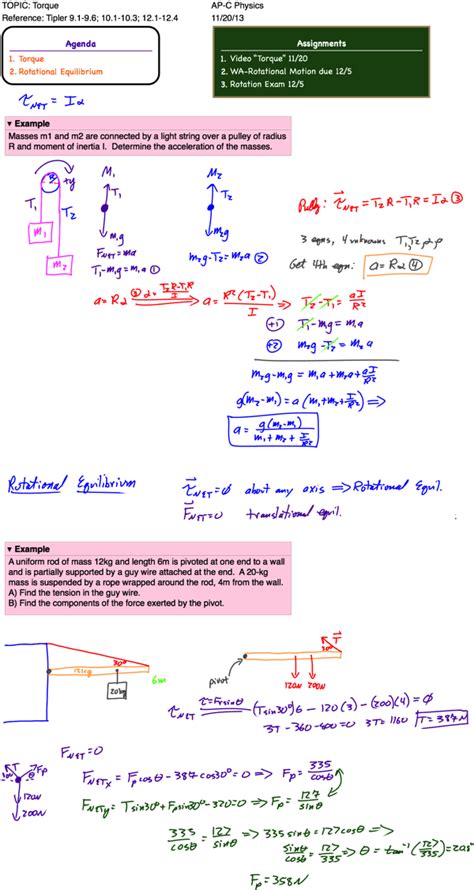 TOPIC: Torque
AP-C Physics
Reference: Tipler 9.1-9.6; 10.1-10.3; 12.1-12.4
11/20/13
Agenda
1. Torque
2. Rotational Equilibrium
Assignments
1. Video "Torque" 11/20
2. WA-Rotational Motion due 12/5
3. Rotation Exam 12/5
τ_NET = Iα
▼ Example
Masses m1 and m2 are connected by a light string over a pulley of radius
R and moment of inertia I. Determine the acceleration of the masses.
R +y
T₁ T₂
m₁
m₂
M₁
T₁
m₁g
F_NET = ma
T₁-m₁g = m₁a ①
M₂
T₂
m₂g
m₂g-T₂ = m₂a ②
Pully: τ_NET = T₂R-T₁R = Iα ③
3 eqns, 4 unknowns
Get 4th eqn: a = Rα ④
a = Rα ③ α = (T₂R-T₁R)/I ⟹ a = R²(T₂-T₁)/I ⟹ T₂-T₁ = aI/R²
+① T₁-m₁g = m₁a
+② m₂g-T₂ = m₂a
m₂g-m₁g = m₁a+m₂a+aI/R²
g(m₂-m₁) = a(m₁+m₂+I/R²) ⟹
a = g(m₂-m₁)/(m₁+m₂+I/R²)
Rotational Equilibrium
τ_NET = ϕ about any axis ⟹ Rotational Equil.
F_NET = 0 translational equil.
▼ Example
A uniform rod of mass 12kg and length 6m is pivoted at one end to a wall
and is partially supported by a guy wire attached at the end. A 20-kg
mass is suspended by a rope wrapped around the rod, 4m from the wall.
A) Find the tension in the guy wire.
B) Find the components of the force exerted by the pivot.
30°
12kg
6m
T
30°
pivot
120N 200N
τ_NET τ=Frsinθ (Tsin30°)6 - 120(3) - (200)(4) = ϕ
3T - 360 - 800 = 0 3T = 1160 T = 387N
F_NET = 0
T
30° θ Fp
120N
200N
F_NETx = Fp cosθ - 387cos30° = 0 ⟹ Fp = 335/cosθ
F_NETy = Tsin30° + Fp sinθ - 320 = 0 ⟹ Fp = 127/sinθ
335/cosθ = 127/sinθ ⟹ 335 sinθ = 127cosθ ⟹
sinθ/cosθ = 127/335 ⟹ θ = tan⁻¹(127/335) = 20.8°
Fp = 358N